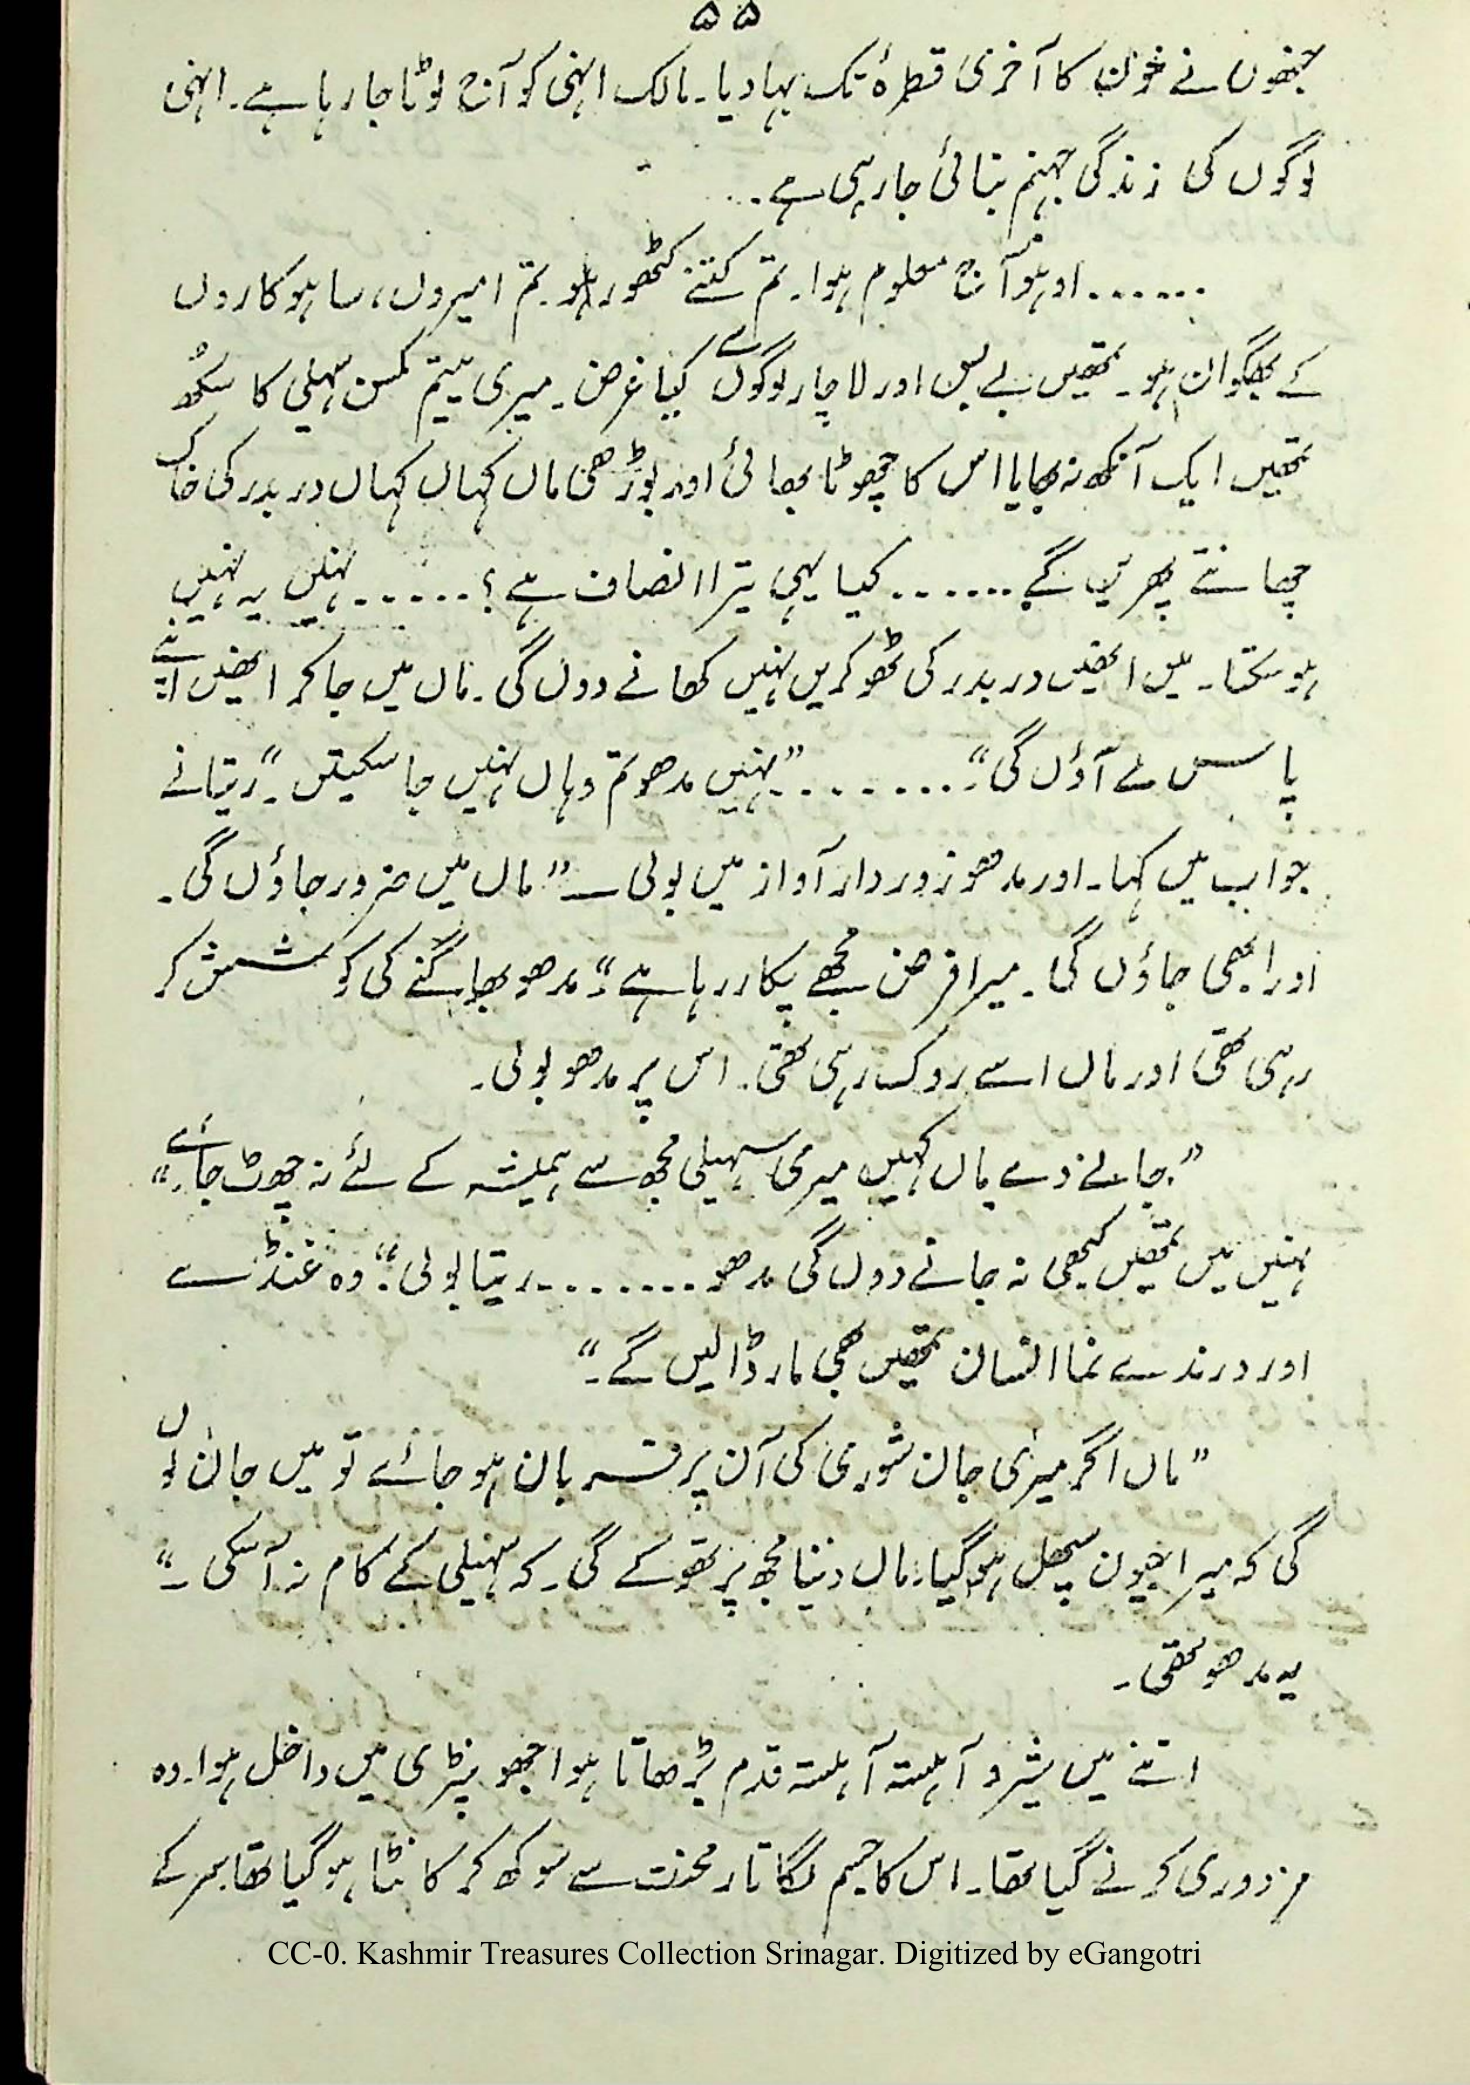 ۵۵
جنھوں نے خون کا آخری قطرۂ تک بہا دیا۔ مالک انہی کو آج لوٹا جا رہا ہے۔ انہی
لوگوں کی زندگی جہنم بنائی جا رہی ہے۔..
......اوہو آج معلوم ہوا۔ تم کتنے کٹھور ہو۔ تم امیروں، ساہوکاروں
کے بھگوان ہو۔ تمھیں بے بس اور لاچار لوگوں سے کیا غرض۔ میری یتیم کمسن سہیلی کا سکھ
تمھیں ایک آنکھ نہ بھایا اس کا چھوٹا بھائی اور بوڑھی ماں کہاں کہاں در بدر کی خاک
چھانتے پھریں گے...... کیا یہی تیرا انصاف ہے؟...... نہیں یہ نہیں
ہو سکتا۔ میں انھیں در بدر کی ٹھوکریں نہیں کھانے دوں گی۔ ماں میں جا کر انھیں اپنے
پاس لے آؤں گی“۔.......”نہیں مدھو تم وہاں نہیں جا سکیتں“۔ ریتا نے
جواب میں کہا۔ اور مدھو زوردار آواز میں بولی ــ”ماں میں ضرور جاؤں گی۔
اور ابھی جاؤں گی۔ میرا فرض مجھے پکار رہا ہے“۔ مدھو بھاگنے کی کوشش کر
رہی تھی اور ماں اسے روک رہی تھی۔ اس پر مدھو بولی۔
”جانے دے ماں کہیں میری سہیلی مجھ سے ہمیشہ کے لئے نہ چھوٹ جائے۔“
نہیں میں تمھیں کبھی نہ جانے دوں گی مدھو.......ریتا بولی: ”وہ غنڈے
اور درندے نما انسان تمھیں بھی مار ڈالیں گے۔“
”ماں اگر میری جان شوری کی آن پر قربان ہو جائے تو میں جان لوں
گی کہ میرا جیون سپھل ہو گیا۔ ماں دنیا مجھ پر تھوکے گی۔ کہ سہیلی کے کام نہ آسکی۔“
یہ مدھو تھی۔
اتنے میں شیرو آہستہ آہستہ قدم بڑھاتا ہوا جھونپڑی میں داخل ہوا۔ وہ
مزدوری کرنے گیا تھا۔ اس کا جسم لگاتار محنت سے سوکھ کر کانٹا ہو گیا تھا۔ سر کے
CC-0. Kashmir Treasures Collection Srinagar. Digitized by eGangotri